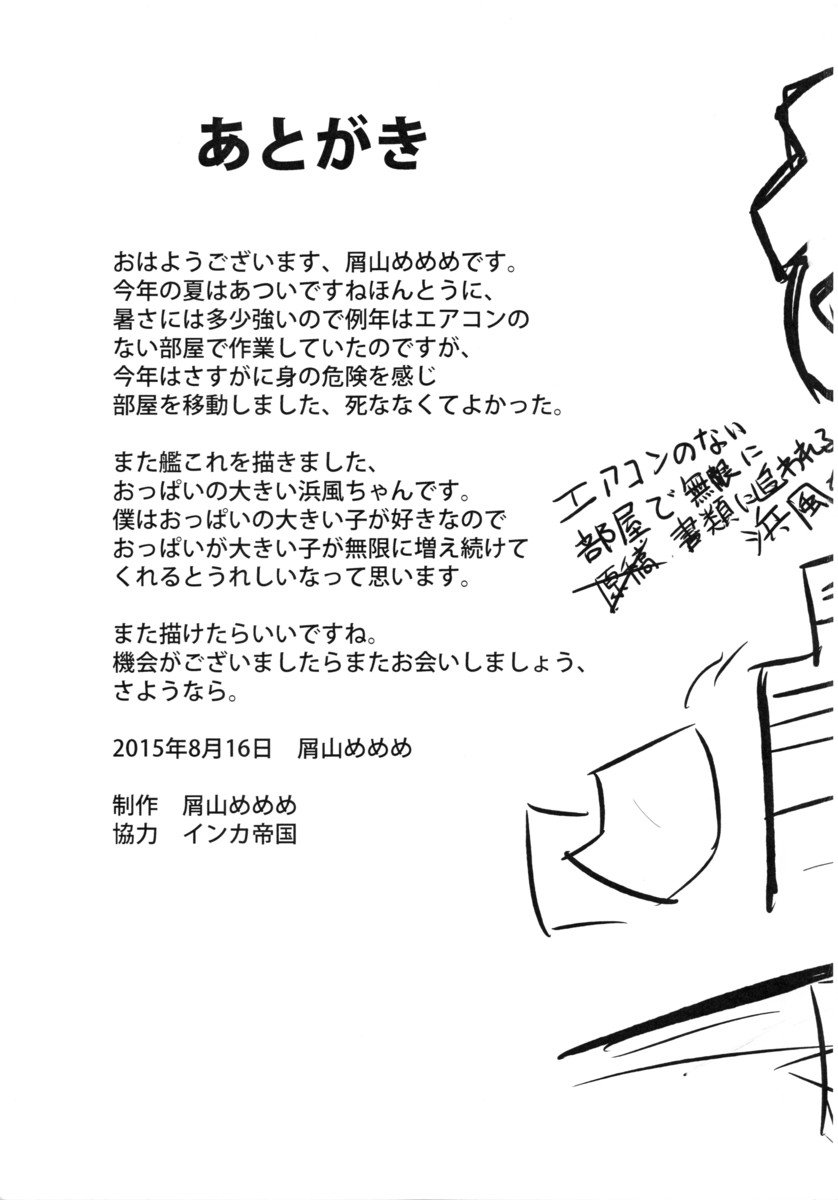 あとがき
おはようございます、屑山めめめです。
今年の夏はあついですねほんとうに、
暑さには多少強いので例年はエアコンの
ない部屋で作業していたのですが、
今年はさすがに身の危険を感じ
部屋を移動しました、死ななくてよかった。
また艦これを描きました、
おっぱいの大きい浜風ちゃんです。
僕はおっぱいの大きい子が好きなので
おっぱいが大きい子が無限に増え続けて
くれるとうれしいなって思います。
また描けたらいいですね。
機会がございましたらまたお会いしましょう、
さようなら。
2015年8月16日　屑山めめめ
制作　屑山めめめ
協力　インカ帝国
エアコンのない
部屋で無限に
原稿 書類に追われる
浜風